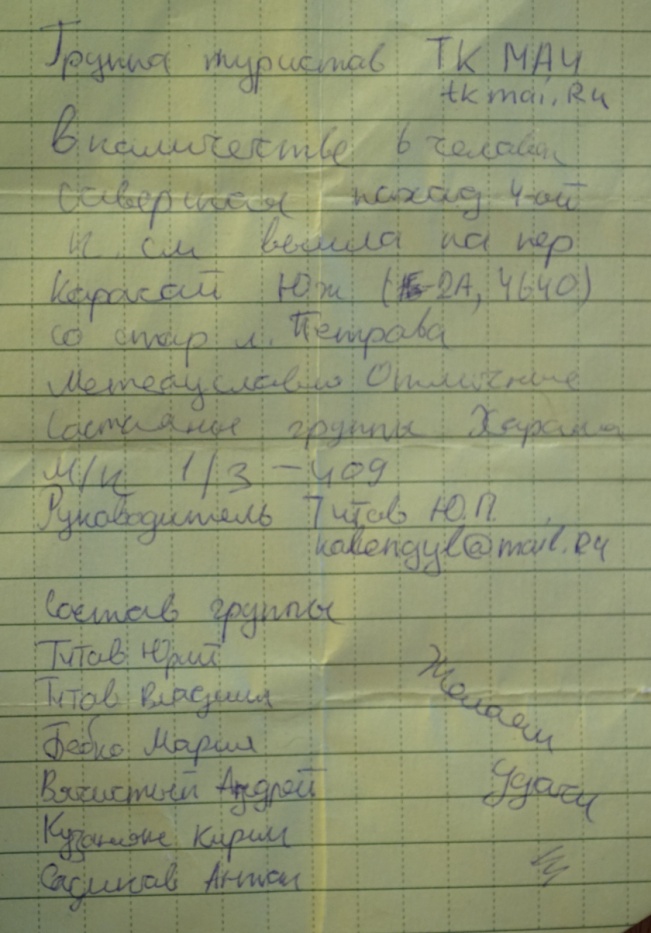 Группа туристов ТК МАИ
tkmai.Ru
В количестве 6 человек
совершая поход 4-ой
к. см вышла на пер
Каракай Юж (2А, 4640)
со стор л. Петрова
Метеоусловия Отличные
Состояние группы Хорошо
М/К 1/3 - 409
Руководитель Титов Ю.П.
kabengyl@mail.Ru
Состав группы
Титов Юрий
Титов Владимир
Бебко Мария
Вячистый Андрей
Кирилл
Садиков Антон
Желаем
Удачи